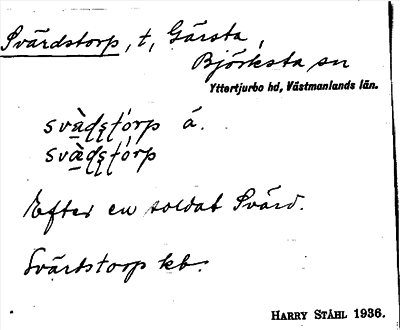 Svärdstorp, t, Gärsta,
Björksta sn
Yttertjurbo hd, Västmanlands län.
svàdstórp á.
svàdstórp
Efter en soldat Svärd.
Svärdstorp kb.
HARRY STÅHL 1936.